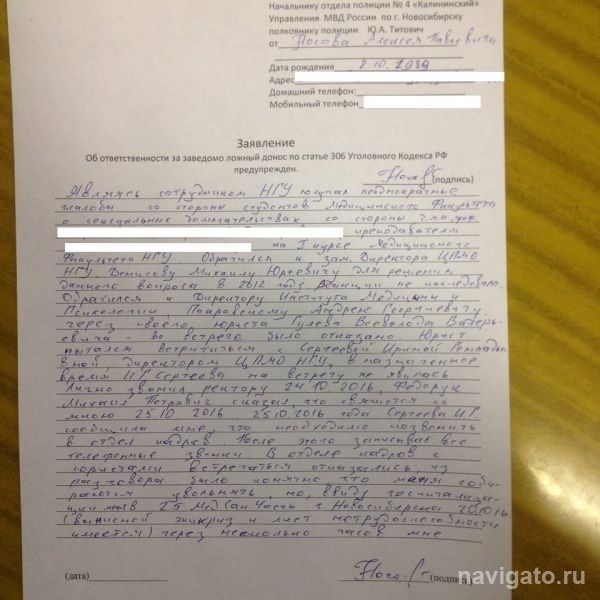 Начальнику отдела полиции № 4 «Калининский»
Управления МВД России по г. Новосибирску
полковнику полиции Ю.А. Титович
от Носова Алексея Павловича
Дата рождения 8.10.1989
Адрес
Домашний телефон:
Мобильный телефон
Заявление
Об ответственности за заведомо ложный донос по статье 306 Уголовного Кодекса РФ
предупрежден.
(подпись)
Являясь сотрудником НГУ неоднократные
жалобы со стороны студентов Медицинского Факультета
о сексуальных домогательствах со стороны д.м.н. проф
преподавателя
на I курсе Медицинского
Факультета НГУ Обратился к зам. Директора ЦПМО
НГУ, Денисову Михаилу Юрьевичу для решения
данного вопроса в 2012 году, реакции не последовало.
Обратился к Директору Института Медицины и
Психологии, Покровскому Андрею Георгиевичу
через своего юриста Гулева Всеволода Валерь-
евича - во встрече было отказано. Юрист
пытался встретиться с Сергеевой Ириной Геннадь-
евной, директором ЦПМО НГУ, в назначенное
время И.Г. Сергеева на встречу не явилась
Лично звонил ректору 24.10.2016, Федорук
Михаил Петрович сказал что свяжется со
мною 25.10.2016. 25.10.2016 года Сергеева И.Г.
сообщила мне, что необходимо позвонить
в отдел кадров После этого записывал все
телефонные звонки. В отделе кадров с
юристами встречаться отказались, из
разговора было понятно что меня соби-
раются увольнять, но, ввиду госпитализа-
ции меня в 25 МедСанЧасть г Новосибирска 26.10.16
(выписной эпикриз и лист нетрудоспособности
имеется) через несколько часов мне
(дата)
(подпись)
navigato.ru